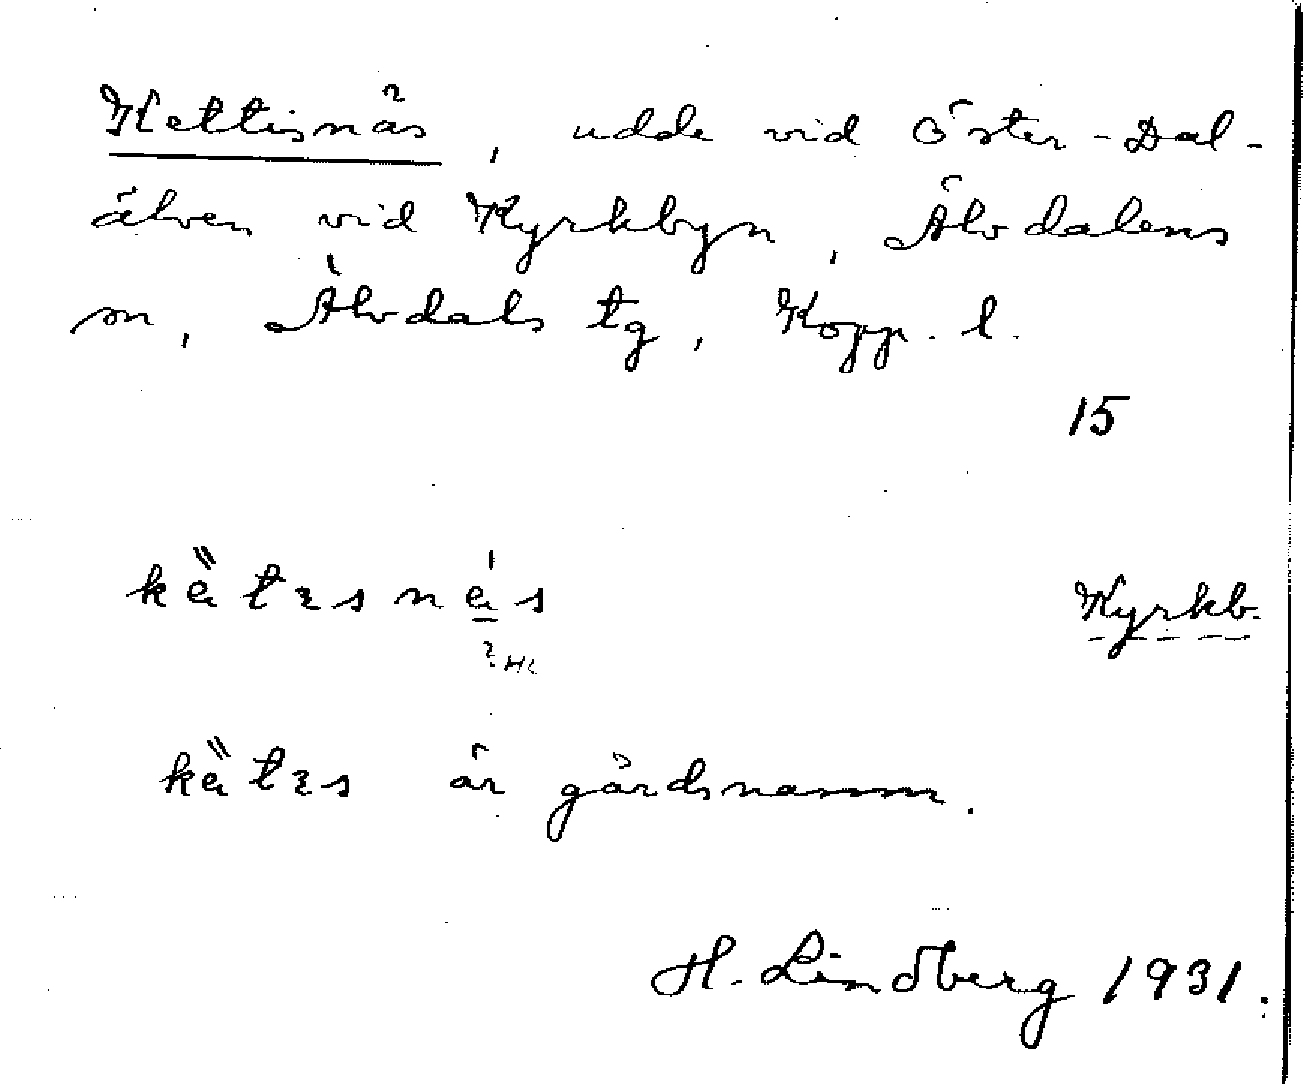 Kettisnäs, udde vid Öster-Dal-
älven vid Kyrkbyn, Älvdalens
sn, Älvdals tg, Kopp. l.
15
kätɩsnäs Kyrkb.
? HL
kätɩs är gårdsnamn.
H. Lindberg 1931.